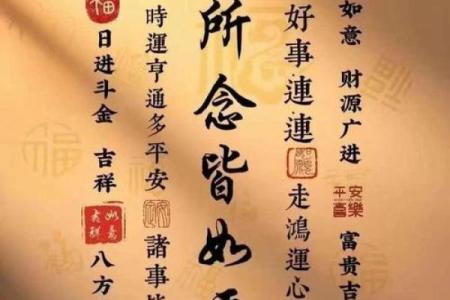 如意 财源广进 平安喜樂 富贵吉
好事連連 走鴻運心
所念皆如
時運亨通多平安 諸事
福 日进斗金 吉祥 如意吉祥 八方